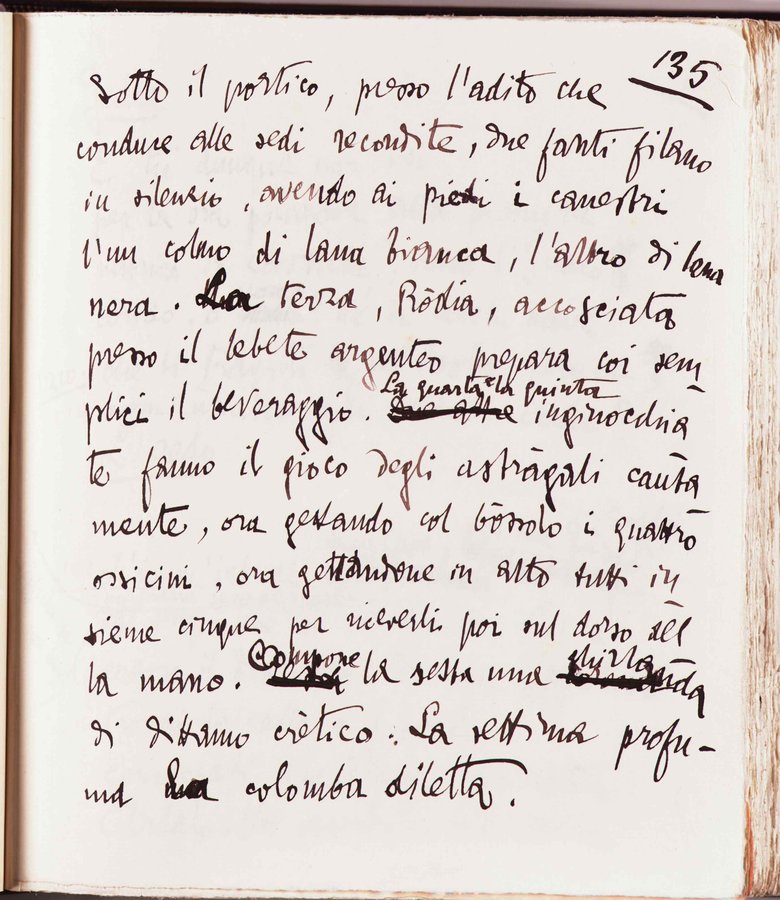 135
Sotto il portico, presso l'adito che
conduce alle sedi recondite, due fanti filano
in silenzio, avendo ai piedi i canestri
l'un colmo di lana bianca, l'altro di lana
nera. La terza, Ròdia, accosciata
presso il lebete argenteo prepara coi sem
plici il beveraggio. La quarta e la quinta inginocchia
te fanno il gioco degli astràgali cauta
mente, ora gettando col bòssolo i quattro
ossicini, ora gettandone in alto tutti in
sieme cinque per riceverli poi sul dorso del
la mano. Compone la sesta una ghirlanda
di dittamo crètico. La settima profu-
ma la colomba diletta.